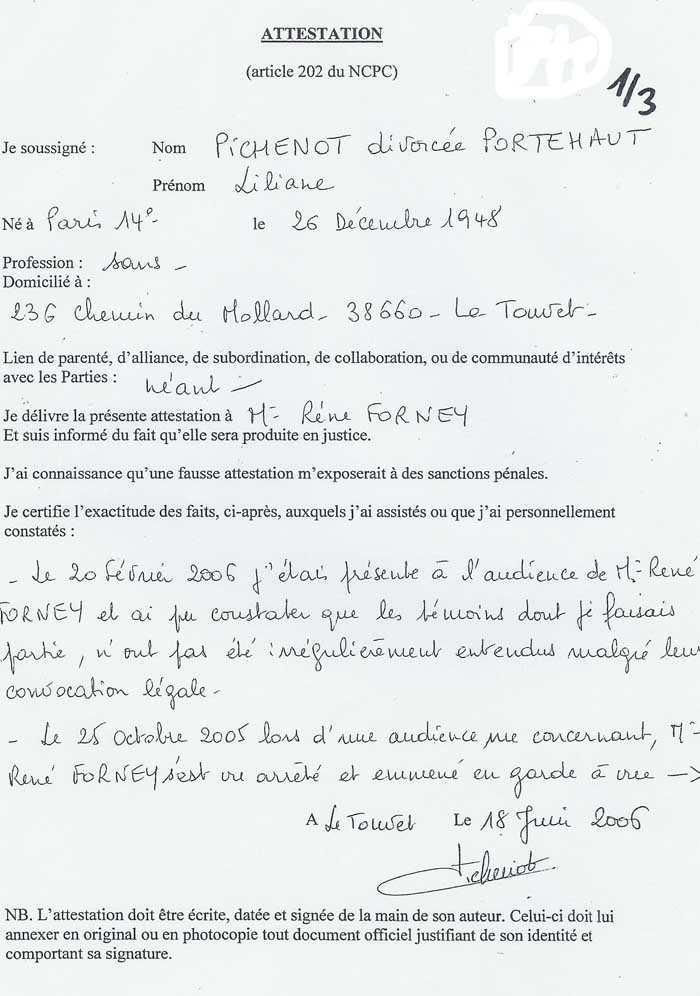 ATTESTATION
(article 202 du NCPC)
1/3
Je soussigné : Nom PiCHENOT divorcée PORTEHAUT
Prénom Liliane
Né à Paris 14e- le 26 Décembre 1948
Profession : sans -
Domicilié à :
236 Chemin du Mollard - 38660 - Le Touvet -
Lien de parenté, d'alliance, de subordination, de collaboration, ou de communauté d'intérêts
avec les Parties : néant -
Je délivre la présente attestation à Mr Réne FORNEY
Et suis informé du fait qu'elle sera produite en justice.
J'ai connaissance qu'une fausse attestation m'exposerait à des sanctions pénales.
Je certifie l'exactitude des faits, ci-après, auxquels j'ai assistés ou que j'ai personnellement
constatés :
- Le 20 février 2006 j'étais présente à l'audience de Mr René
FORNEY et ai pu constater que les témoins dont je faisais
partie, n'ont pas été irrégulièrement entendus malgré leur
convocation légale -
- Le 25 Octobre 2005 lors d'une audience me concernant, Mr
René FORNEY s'est vu arrêté et emmené en garde à vue ->
A Le Touvet Le 18 Juin 2006
Pichenot
NB. L'attestation doit être écrite, datée et signée de la main de son auteur. Celui-ci doit lui
annexer en original ou en photocopie tout document officiel justifiant de son identité et
comportant sa signature.